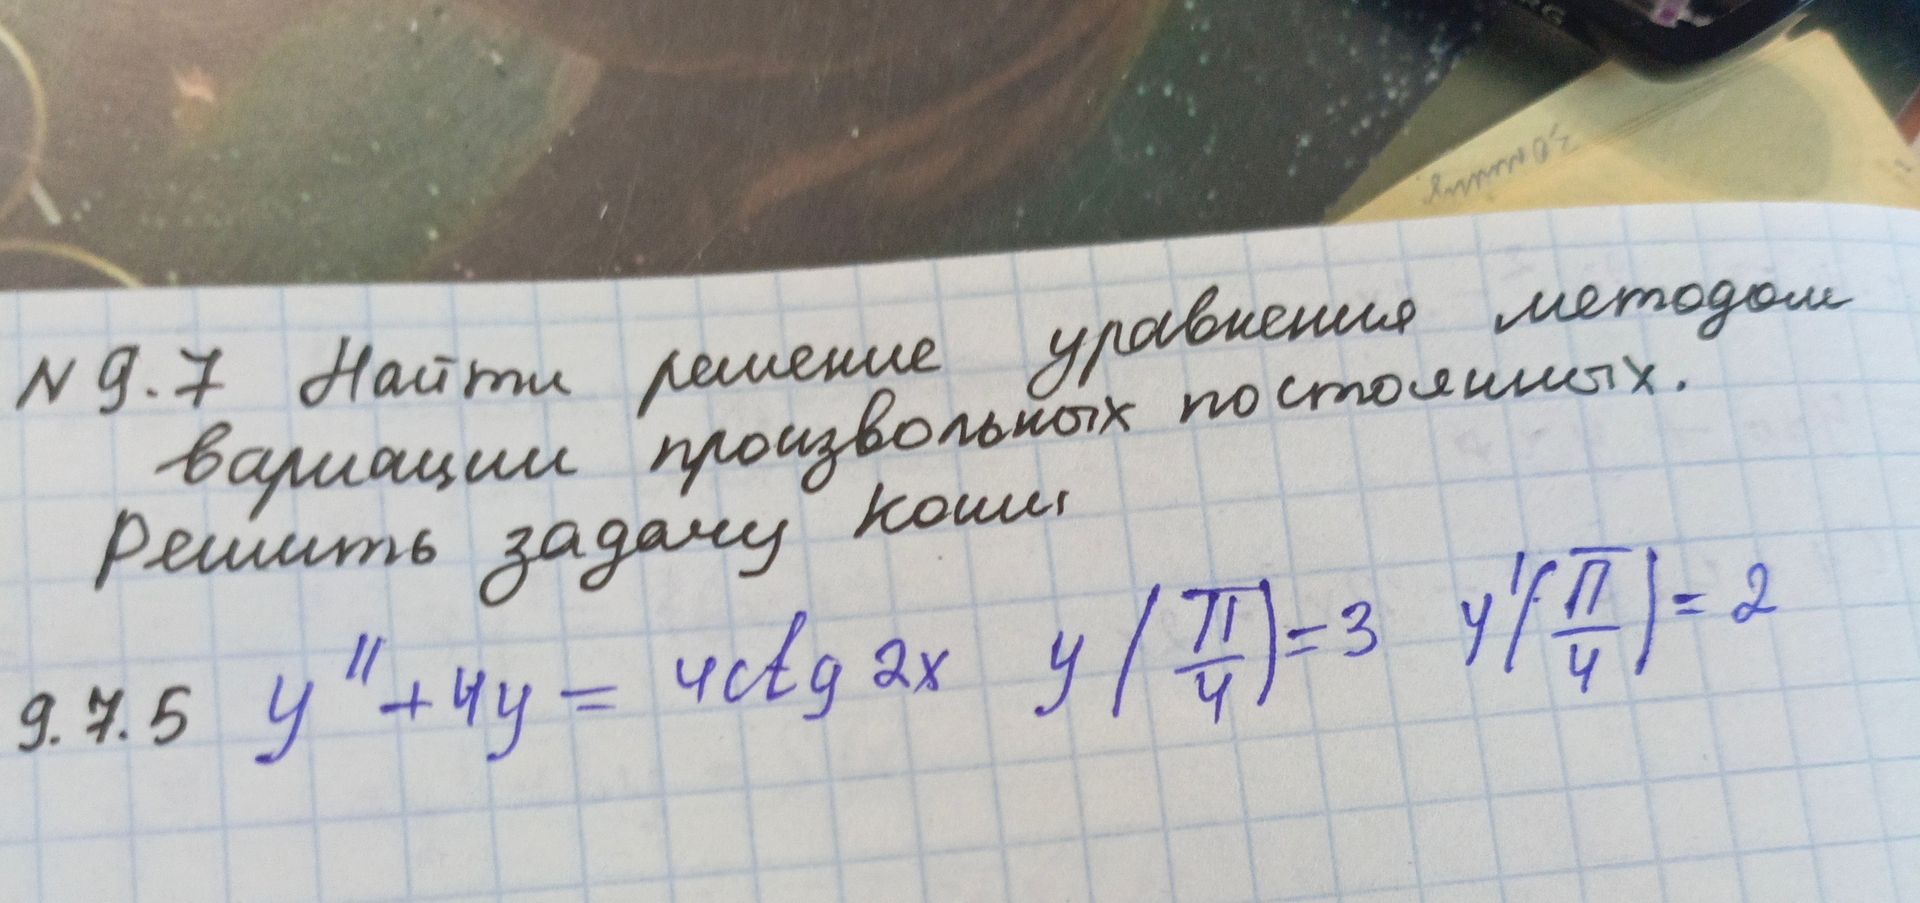 N 9.7 Найти решение уравнения методом
вариации произвольных постоянных.
Решить задачу Коши
9.7.5 y'' + 4y = 4ctg 2x y(π/4) = 3 y'(π/4) = 2